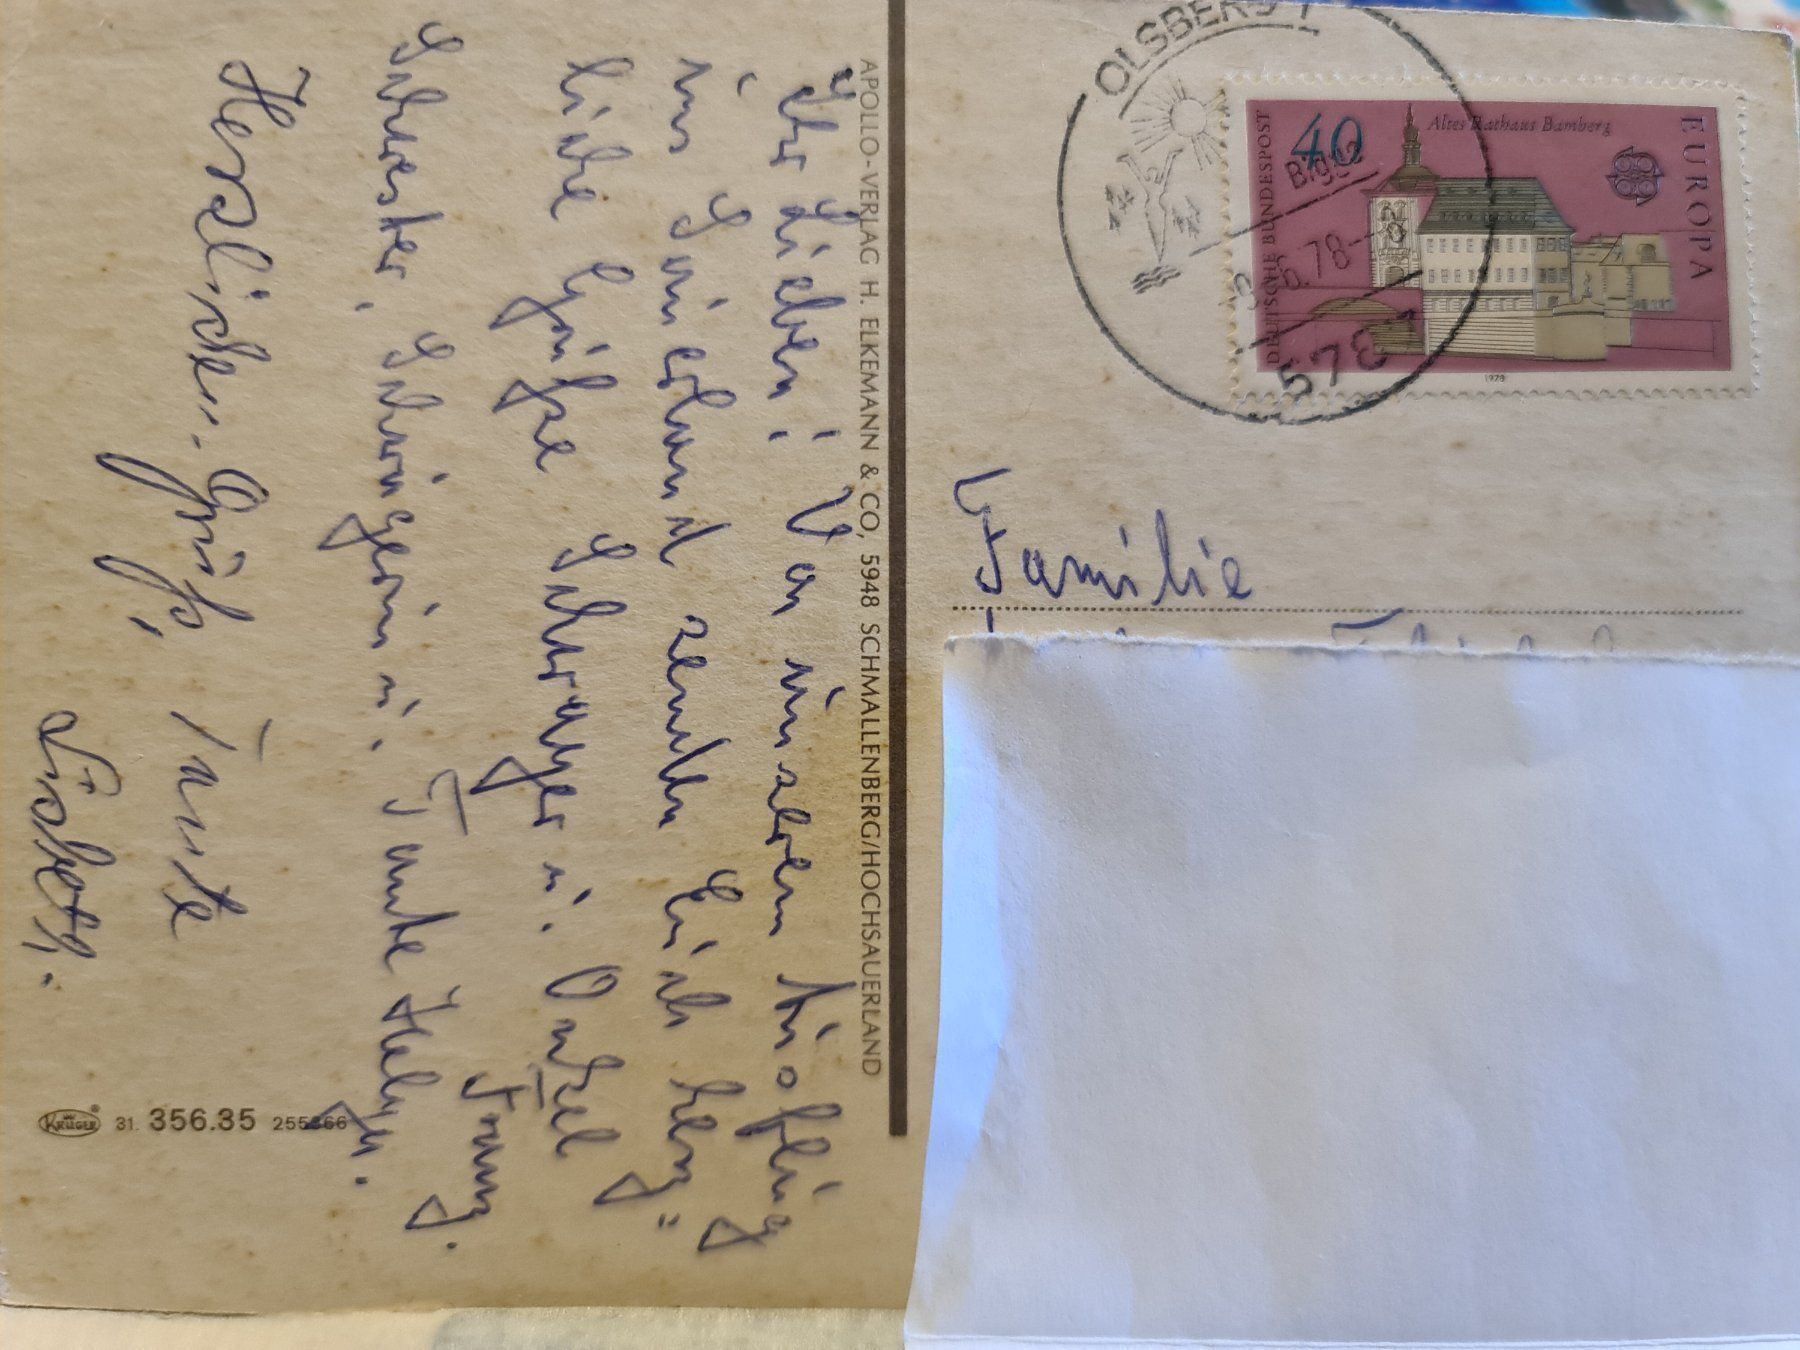 Ihr Lieben! Von unserem Ausflug
ins Sauerland senden Euch herz-
liche Grüße Schwager u. Onkel
Franz.
Schwester, Schwägerin u. Tante Helga.
Herzlichen Gruß,
Tante
Lisbeth.
APOLLO-VERLAG H. ELKEMANN & CO, 5948 SCHMALLENBERG/HOCHSAUERLAND
KRÜGER 31. 356.35 255366
OLSBERG 1
Bigge
78-
578
40
Altes Rathaus Bamberg
EUROPA
DEUTSCHE BUNDESPOST
1978
Familie